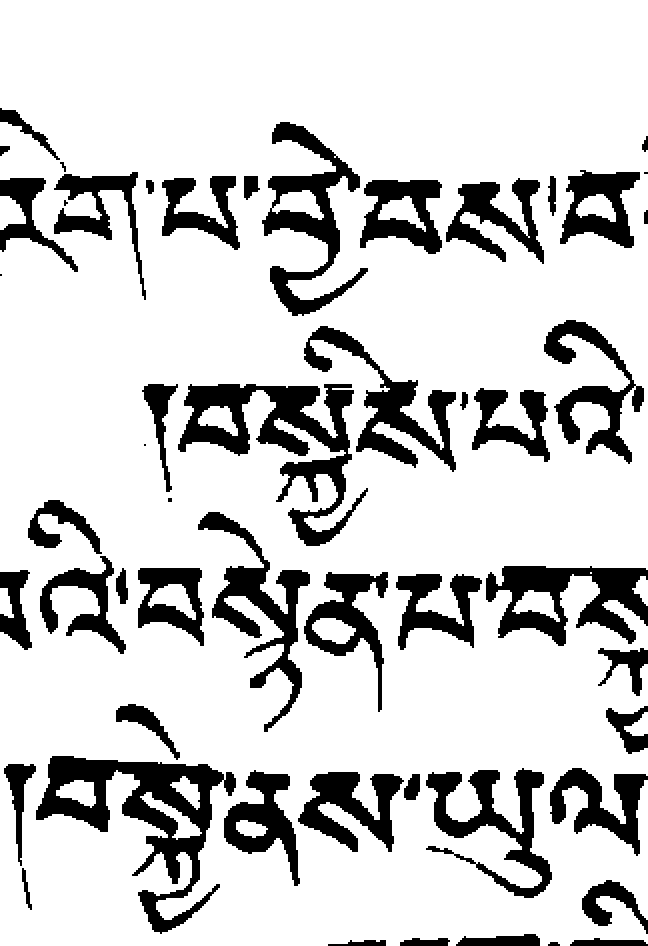 པ་བྱེ་བས་
།བསྐྱིས་པའི་
པའི་བསྟེན་པ་
།བསྐྱེ་ནས་ཡུལ